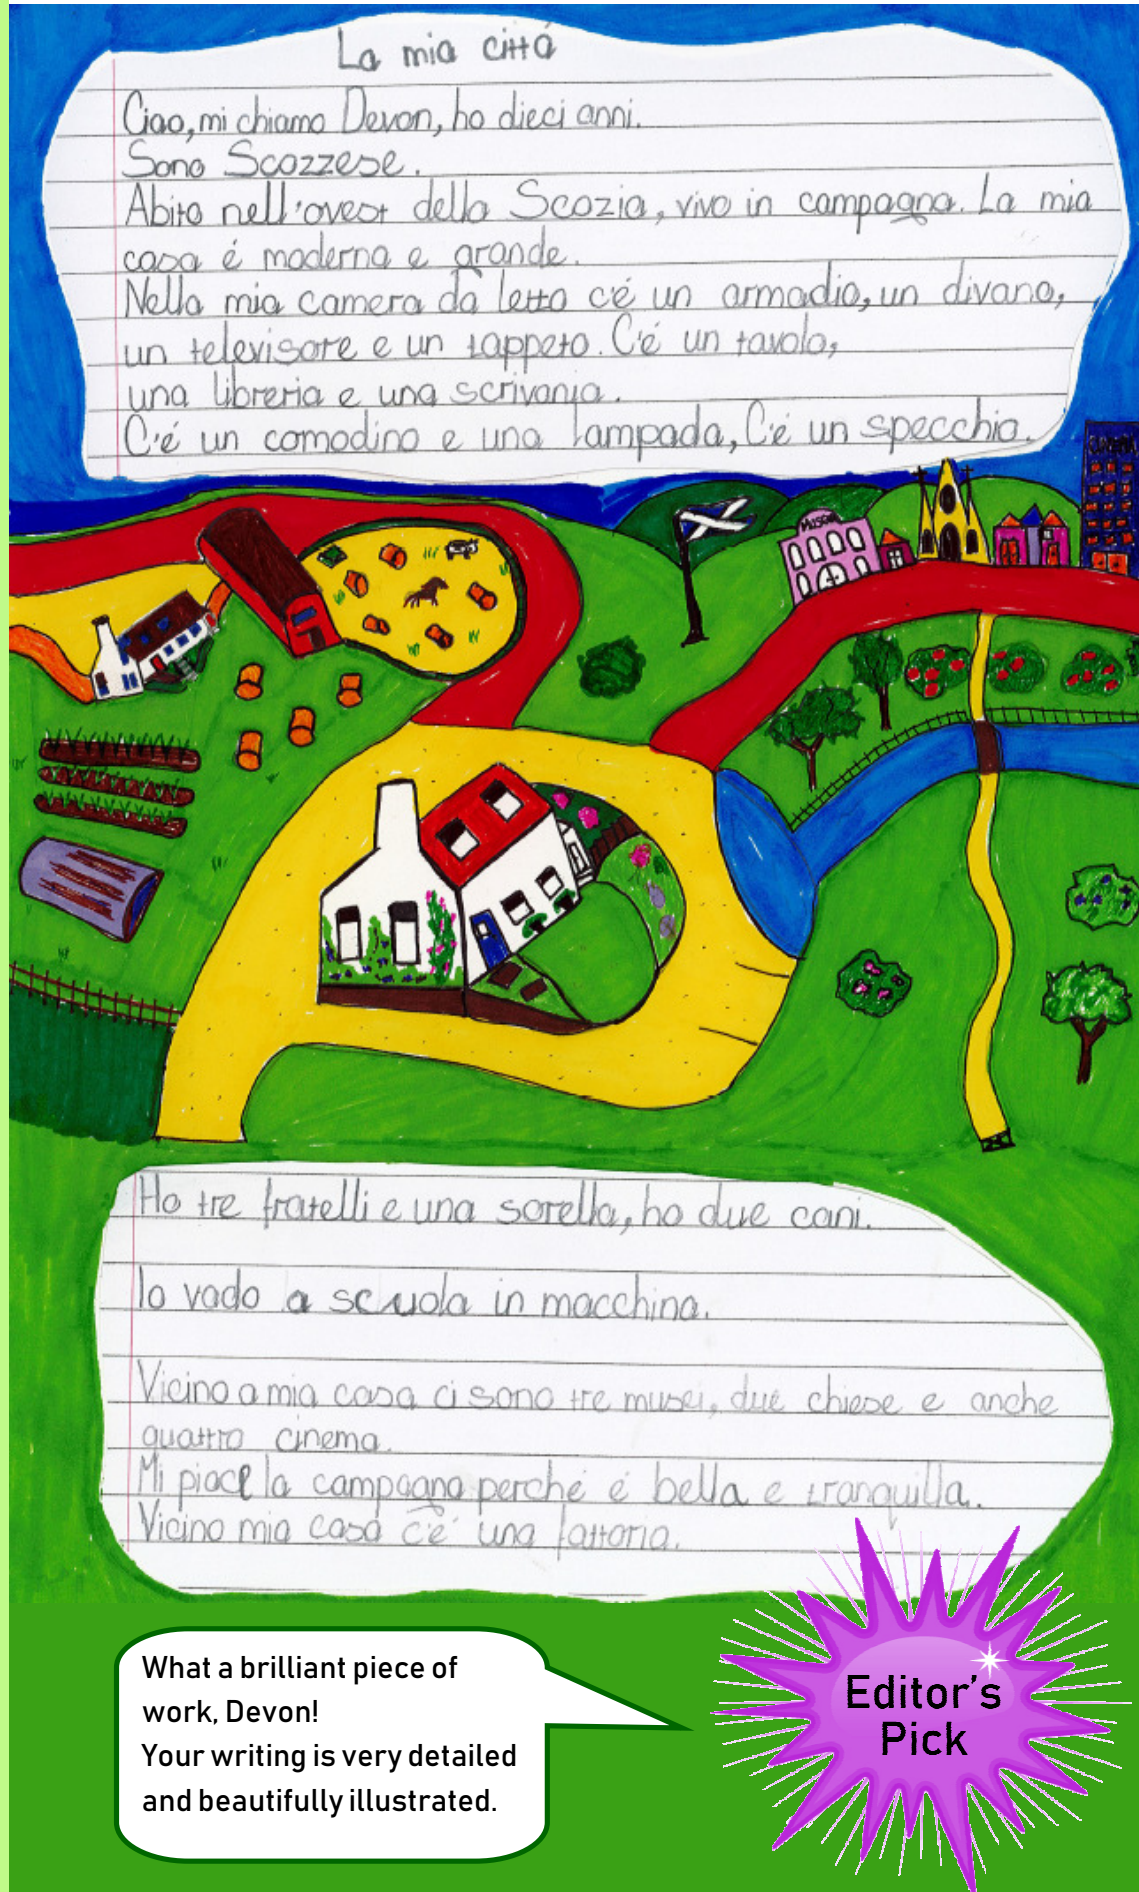 La mia cittá
Ciao, mi chiamo Devon, ho dieci anni.
Sono Scozzese.
Abito nell'ovest della Scozia, vivo in campagna. La mia
casa é moderna e grande.
Nella mia camera da letto c'é un armadio, un divano,
un televisore e un tappeto. C'é un tavolo,
una libreria e una scrivania.
C'é un comodino e una lampada, C'é un specchio.
MUSEUM
CINEMA
Ho tre fratelli e una sorella, ho due cani.
Io vado a scuola in macchina.
Vicino a mia casa ci sono tre musei, due chiese e anche
quattro cinema.
Mi piace la campagna perché é bella e tranquilla.
Vicino mia casa c'é una fattoria.
What a brilliant piece of
work, Devon!
Your writing is very detailed
and beautifully illustrated.
Editor's
Pick